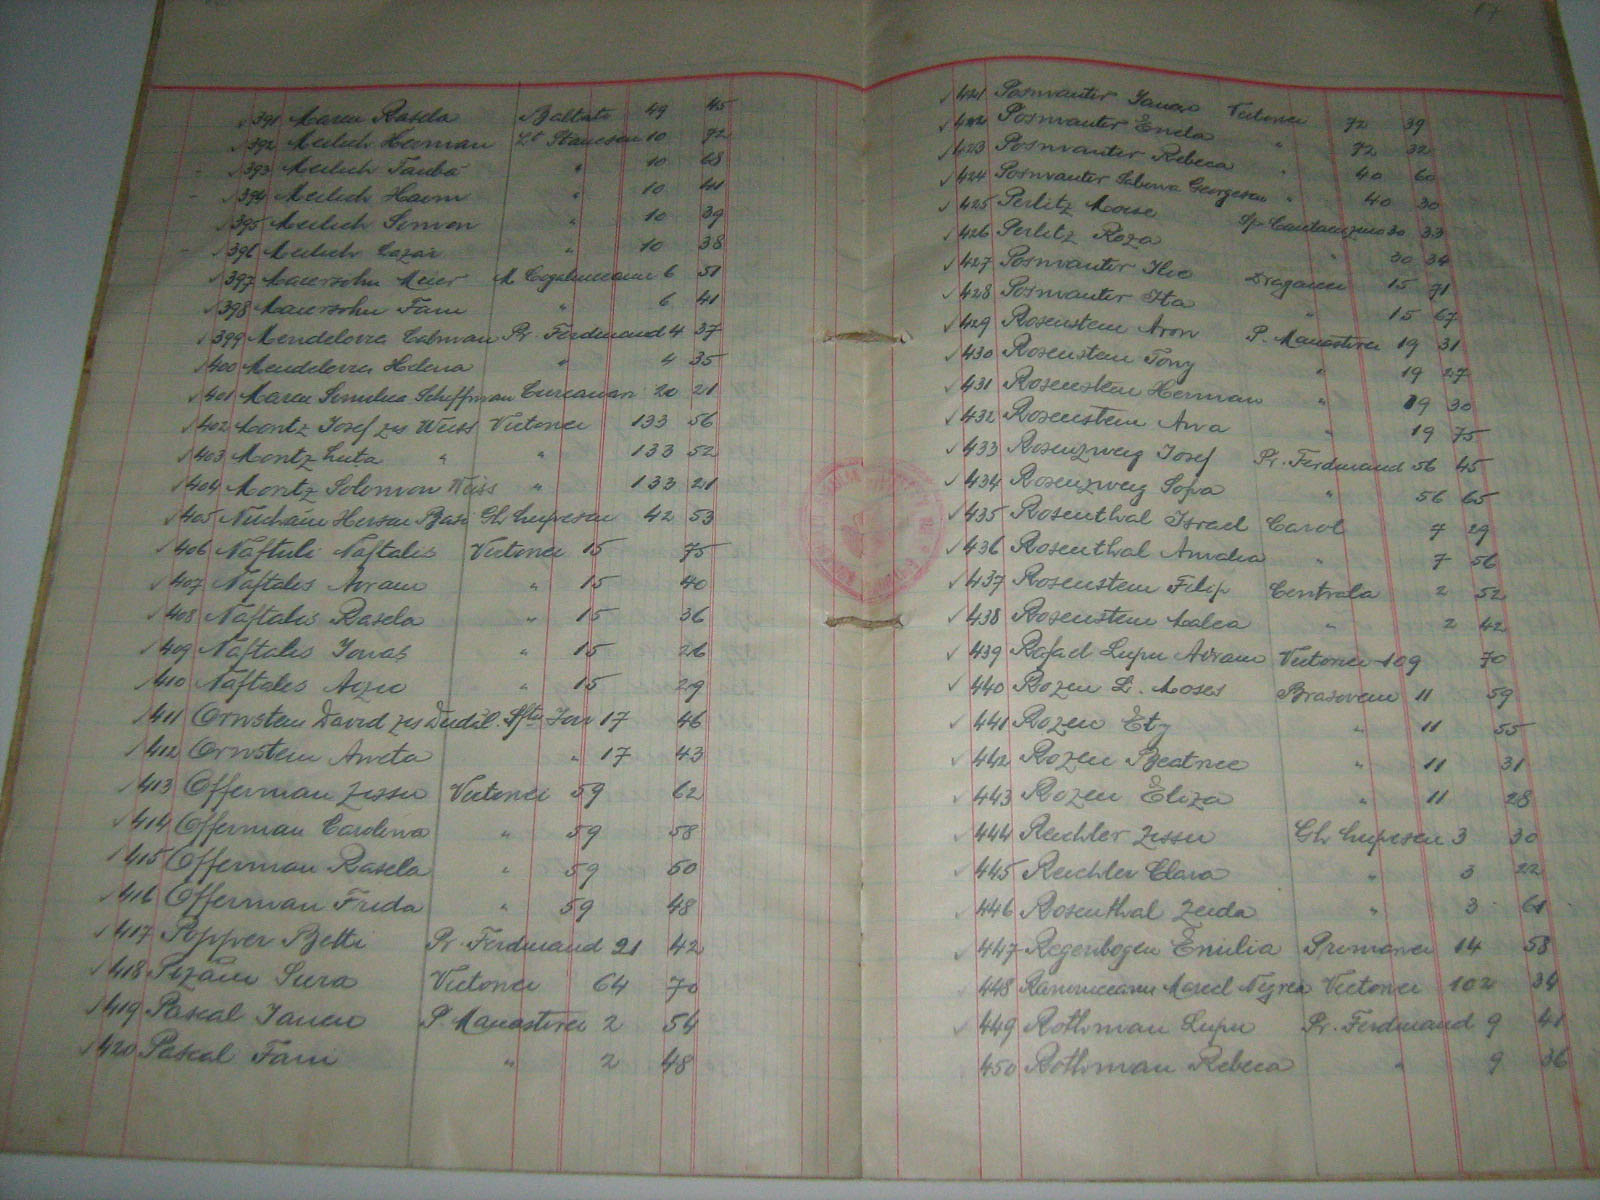 17
391 Marcu Rasela Baltato 49 45
392 Meilich Herman Lt Stancescu 10 72
393 Meilich Tauba " 10 68
394 Meilich Haim " 10 41
395 Meilich Simon " 10 39
396 Meilich Lazar " 10 38
397 Maiersohn Meier M Cogalniceanu 6 51
398 Maiersohn Fani " 6 41
399 Mendelovici Calman Pr. Ferdinand 4 37
400 Mendelovici Helena " 4 35
401 Marcu Similica Scheffman Curcanari 20 21
402 Moritz Iosef zis Weiss Victoriei 133 56
403 Moritz Luta " " 133 52
404 Moritz Solomon Weiss " 133 21
405 Nuchaim Herscu Basi Gh Lupescu 42 53
406 Naftuli Naftalis Victoriei 15 75
407 Naftalis Avram " 15 40
408 Naftalis Rasela " 15 36
409 Naftalis Ionas " 15 26
410 Naftalis Aizic " 15 29
411 Ornstein David zis Dudil Sftu Ion 17 46
412 Ornstein Aneta " 17 43
413 Offerman Zissu Victoriei 59 62
414 Offerman Carolina " 59 58
415 Offerman Rasela " 59 50
416 Offerman Frida " 59 48
417 Popper Betti Pr. Ferdinand 21 42
418 Sura Victoriei 64 70
419 Pascal Iancu P. Manastirei 2 54
420 Pascal Fani " 2 48
421 Posmantir Iancu Victoriei 72 39
422 Posmantir Enela " 72 32
423 Posmantir Rebeca " 40 60
424 Posmantir Sabina Georgescu " 40 30
425 Perlitz Moise Sp. Cantacuzino 30 33
426 Perlitz Roza " 30 34
427 Posmantir Ilie Dragaicei 15 71
428 Posmantir Ita " 15 67
429 Rosenstein Aron P. Manastirei 19 31
430 Rosenstein Tony " 19 27
431 Rosenstein Herman " 19 30
432 Rosenstein Ana " 19 75
433 Rosenzweig Iosef Pr. Ferdinand 56 45
434 Rosenzweig Sofia " 56 65
435 Rosenthal Israel Carol 7 29
436 Rosenthal Amalia " 7 56
437 Rosenstein Filip Centrala 2 52
438 Rosenstein Malca " 2 42
439 Rafael Lupu Avram Victoriei 109 70
440 Rozen L. Moses Brasoveni 11 59
441 Rozen Ety " 11 55
442 Rozen Beatrice " 11 31
443 Rozen Eliza " 11 28
444 Reichler Zissu Gh Lupescu 3 30
445 Reichler Clara " 3 22
446 Rosenthal Zeida " 3 61
447 Regenbogen Emilia Primariei 14 58
448 Ramniceanu Marcel Negrea Victoriei 102 34
449 Rothman Lupu Pr. Ferdinand 9 41
450 Rothman Rebeca " 9 36